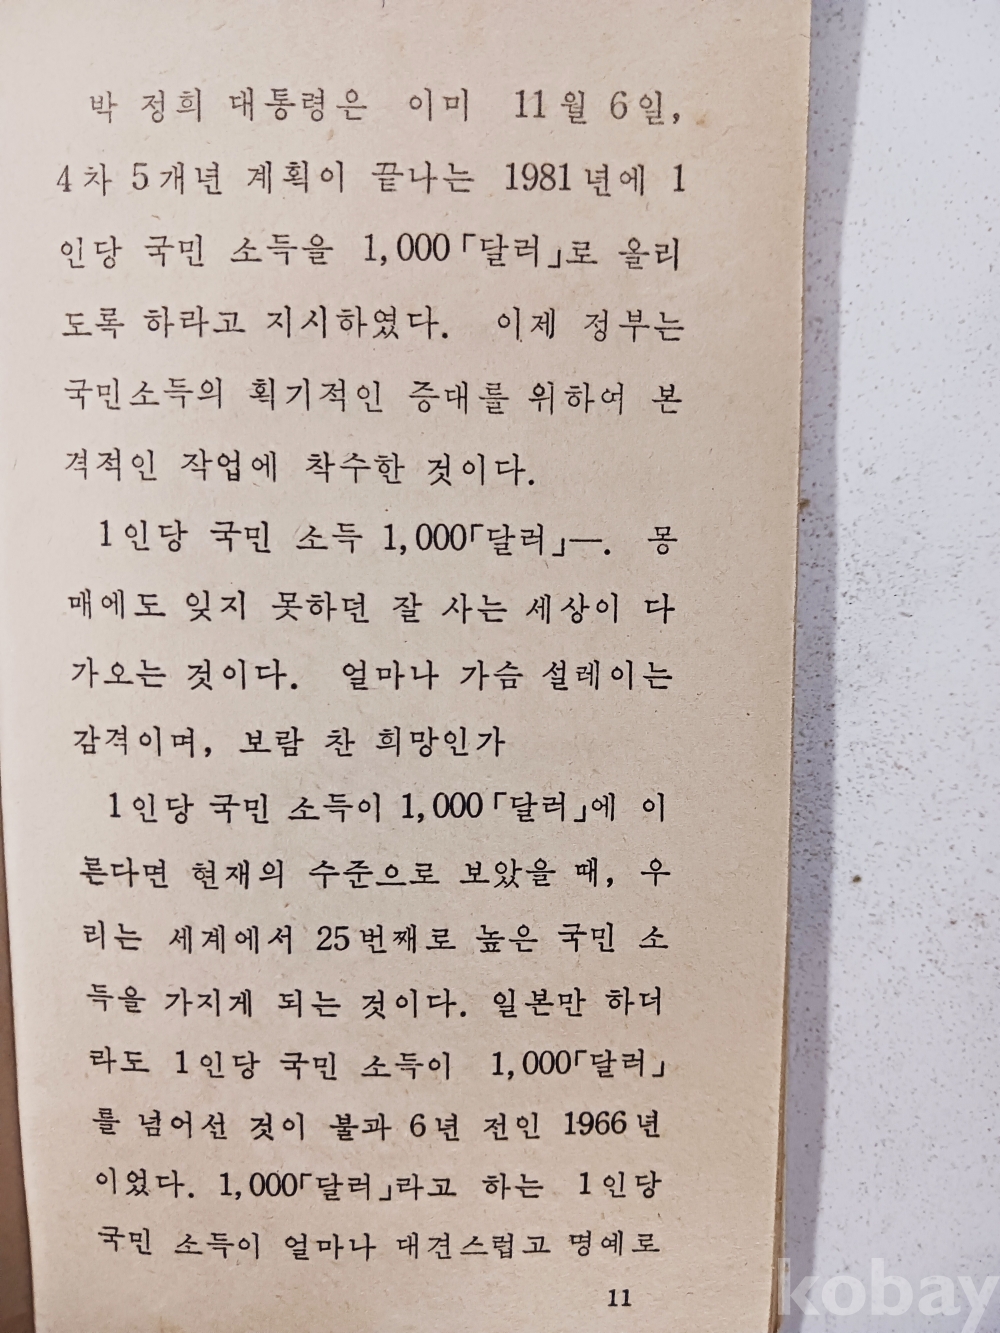 박 정희 대통령은 이미 11월 6일,
4차 5개년 계획이 끝나는 1981년에 1
인당 국민 소득을 1,000「달러」로 올리
도록 하라고 지시하였다. 이제 정부는
국민소득의 획기적인 증대를 위하여 본
격적인 작업에 착수한 것이다.
1인당 국민 소득 1,000「달러」—. 몽
매에도 잊지 못하던 잘 사는 세상이 다
가오는 것이다. 얼마나 가슴 설레이는
감격이며, 보람 찬 희망인가
1인당 국민 소득이 1,000「달러」에 이
른다면 현재의 수준으로 보았을 때, 우
리는 세계에서 25번째로 높은 국민 소
득을 가지게 되는 것이다. 일본만 하더
라도 1인당 국민 소득이 1,000「달러」
를 넘어선 것이 불과 6년 전인 1966년
이었다. 1,000「달러」라고 하는 1인당
국민 소득이 얼마나 대견스럽고 명예로
11
kobay